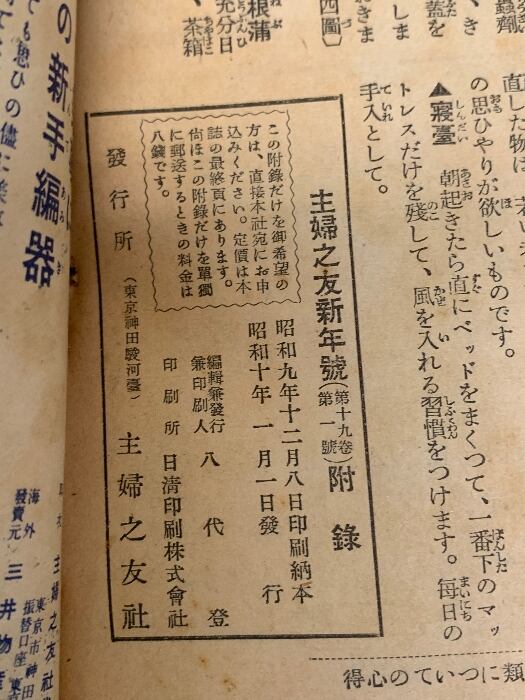 直した物は
の思ひやりが欲しいものです。
▲寢臺 朝起きたら直にベッドをまくつて、一番下のマッ
トレスだけを殘して、風を入れる習慣をつけます。毎日の
手入として。
根蒲
充分日
、茶箱
四圖〕
蟲劑
蓋を
類についての心得
主婦之友新年號(第十九卷第一號)附錄
昭和九年十二月八日印刷納本
昭和十年一月一日發行
編輯兼發行
兼印刷人 八代登
印刷所 日淸印刷株式會社
この附錄だけを御希望の
方は、直接本社宛にお申
込みください。定價は本
誌の最終頁にあります。
尙ほこの附錄だけを單獨
に郵送するときの料金は
八錢です。
發行所(東京神田駿河臺)主婦之友社
の新手編器
ても思ひの儘に
海外
發賣元 三井物產
主婦之友社
東京市神田
振替口座東京